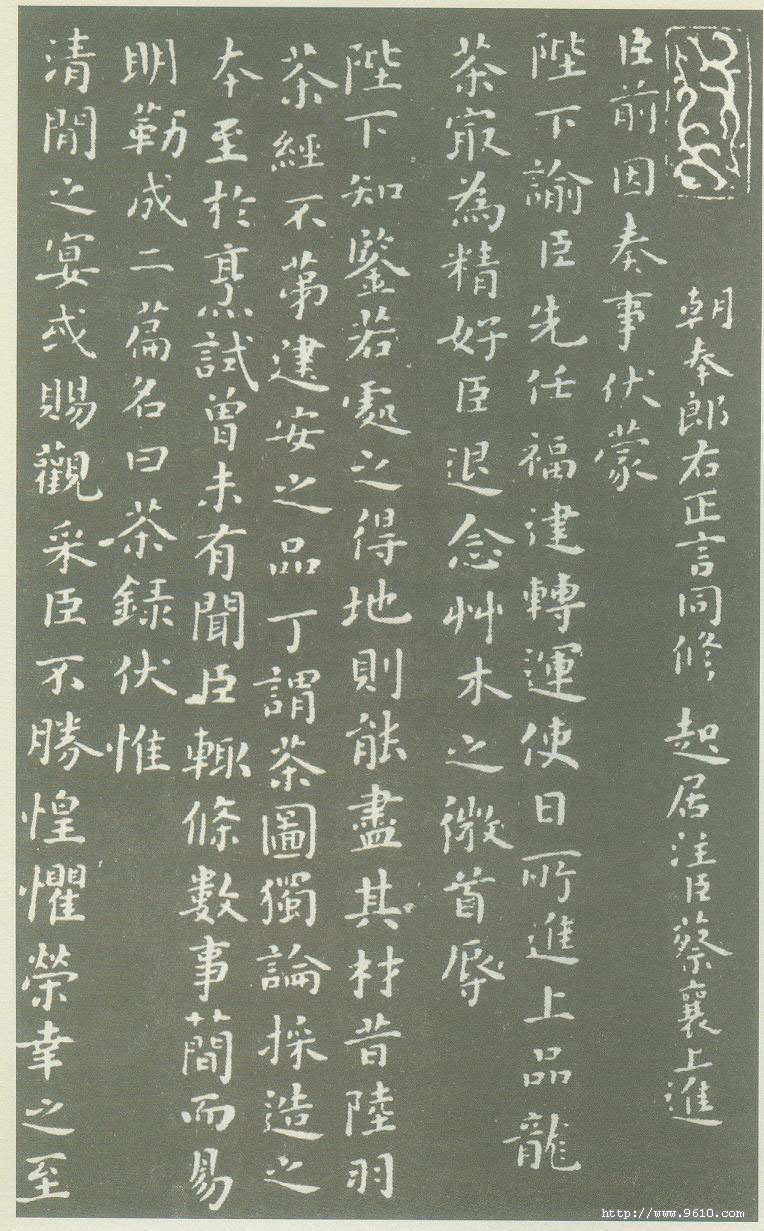 朝奉郎右正言同修起居注臣蔡襄上進
臣前因奏事伏蒙
陛下諭臣先任福建轉運使日所進上品龍
茶㝡為精好臣退念艸木之微首辱
陛下知鑒若處之得地則能盡其材昔陸羽
茶經不苐建安之品丁謂茶圖獨論採造之
本至於烹試曾未有聞臣輒條數事簡而易
明勒成二篇名曰茶錄伏惟
清閒之宴或賜觀采臣不勝惶懼榮幸之至
http://www.9610.com